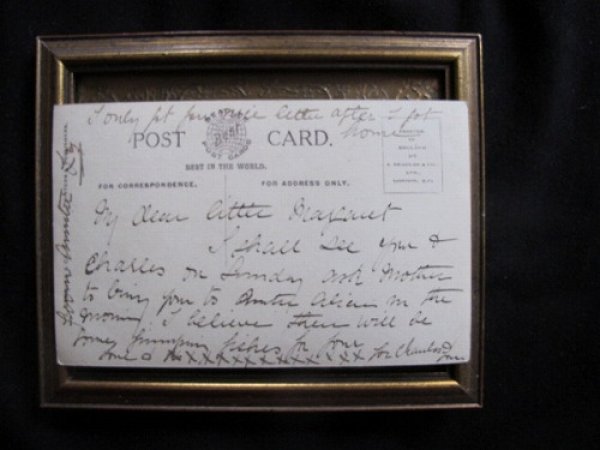 I only got your nice letter after I got
home
POST CARD.
BEST IN THE WORLD.
PRINTED
IN
ENGLAND
FOR CORRESPONDENCE.
FOR ADDRESS ONLY.
My dear little Margaret
I shall see you &
Charles on Sunday ask Mother
to bring you to Auntie in the
morning I believe there will be
some fishes for you
love & xxxxxxxxxxxxx for Charles & you
from Auntie